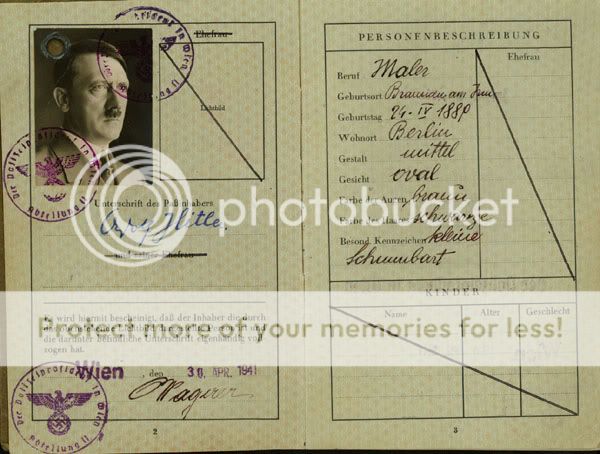 Ehefrau
Lichtbild
Der Polizeipräsident in Wien
Abteilung II
Unterschrift des Paßinhabers
Adolf Hitler
und seiner Ehefrau
Es wird hiermit bescheinigt, daß der Inhaber die durch
die darunter befindliche Unterschrift eigenhändig voll-
zogen hat.
Wien, den 30. APR. 1941
Wagerer
Der Polizeipräsident in Wien
Abteilung II
2
PERSONENBESCHREIBUNG
Ehefrau
Beruf Maler
Geburtsort Braunau am Inn
Geburtstag IV
Wohnort Berlin
Gestalt mittel
Gesicht oval
Farbe der Augen braun
Farbe der Haare schwarze
Besond. Kennzeichen kleine
Schnurrbart
KINDER
Name Alter Geschlecht
3
photobucket
Protect more of your memories for less!